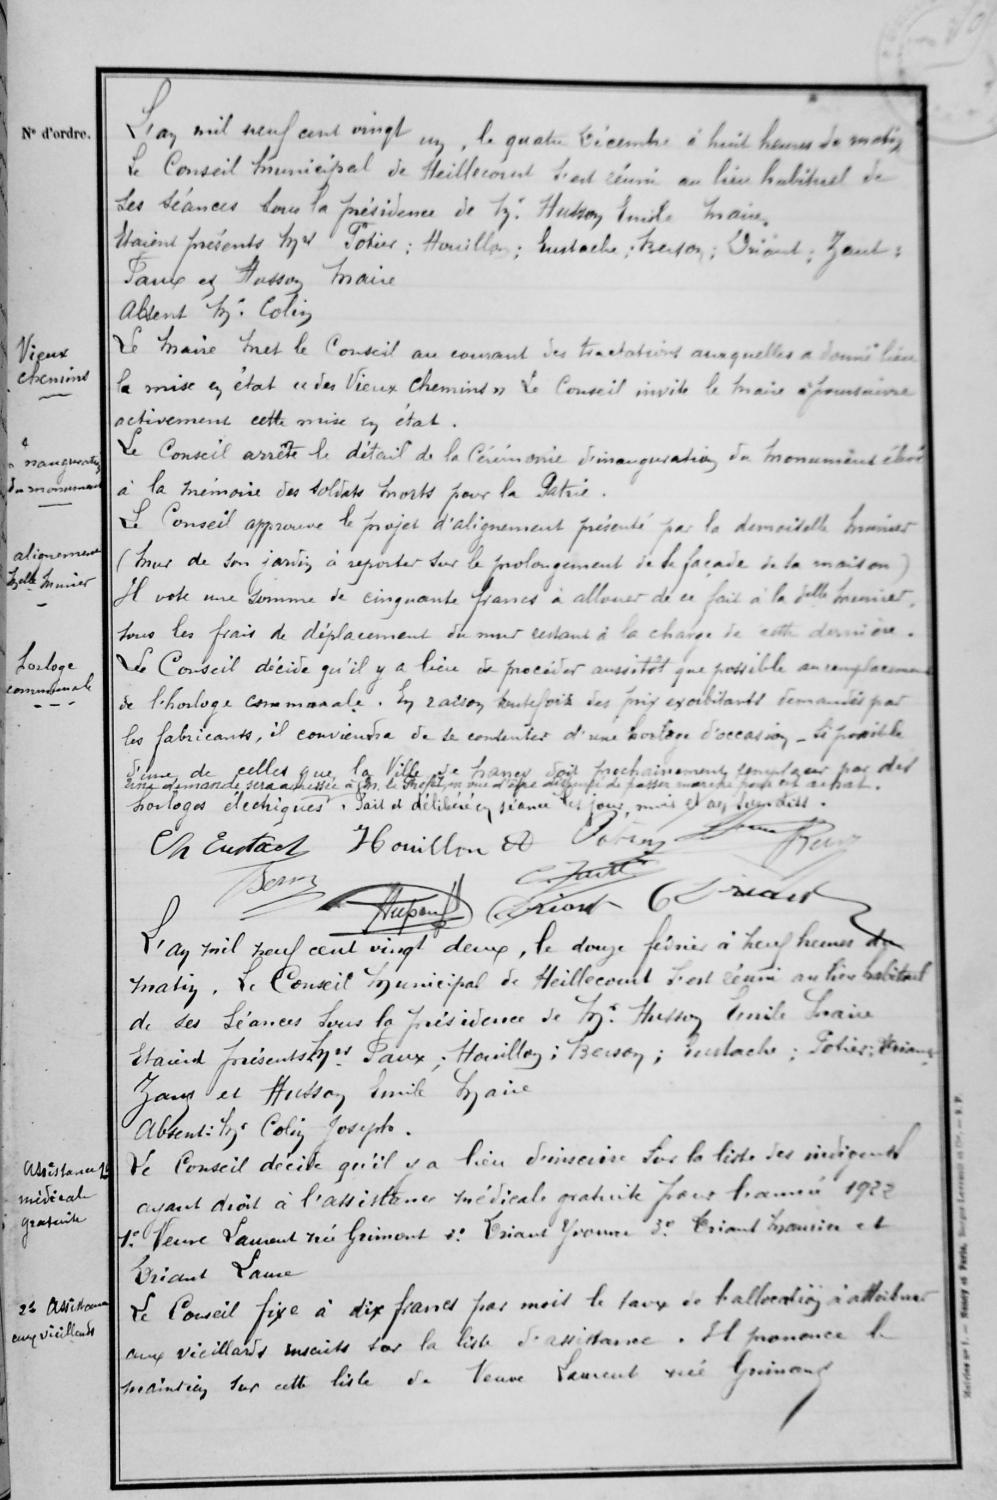 N° d'ordre.
L'an mil neuf cent vingt un, le quatre Décembre à huit heures du matin
Le Conseil Municipal de Heillecourt s'est réuni au lieu habituel de
ses séances sous la présidence de Mr. Husson Emile Maire.
Etaient présents Mrs Potier ; Houillon ; Eustache ; Berson ; Briant ; Zant ;
Paux et Husson Maire
Absent Mr. Colin
Vieux
chemins
Le Maire met le Conseil au courant des tractations auxquelles a donné lieu
la mise en état « des Vieux chemins » Le Conseil invite le Maire à poursuivre
activement cette mise en état.
inauguration
du monument
Le Conseil arrête le détail de la Cérémonie d'inauguration du Monument élevé
à la mémoire des soldats morts pour la Patrie.
alignement
Melle Munier
Le Conseil approuve le projet d'alignement présenté par la demoiselle Munier
(Mur de son jardin à reporter sur le prolongement de la façade de sa maison)
Il vote une somme de cinquante francs à allouer de ce fait à la delle Munier,
tous les frais de déplacement du mur restant à la charge de cette dernière.
horloge
communale
Le Conseil décide qu'il y a lieu de procéder aussitôt que possible au remplacement
de l'horloge communale. En raison toutefois des prix exorbitants demandés par
les fabricants, il conviendra de se contenter d'une horloge d'occasion - si possible
d'une de celles que la Ville de Nancy doit prochainement remplacer par des
Une demande sera adressée à Mr. le Préfet en vue d'être dispensé de passer marché pour cet achat.
horloges électriques. Fait et délibéré en séance les jour, mois et an susdits.
Ch Eustach Houillon Potier
Berson Husson Briant
L'an mil neuf cent vingt deux, le douze février à neuf heures du
matin. Le Conseil Municipal de Heillecourt s'est réuni au lieu habituel
de ses séances sous la présidence de Mr. Husson Emile Maire
Etaient présents Mrs. Paux ; Houillon ; Berson ; Eustache ; Potier ; Briant
Zant et Husson Emile Maire
Absent : Mr Colin Joseph.
Assistance
médicale
gratuite
Le Conseil décide qu'il y a lieu d'inscrire sur la liste des indigents
ayant droit à l'assistance médicale gratuite pour l'année 1922
1° Veuve Laurent née Grimont 2° Briant Yvonne 3° Briant Maurice et
Briant Laure
2° Assistance
aux vieillards
Le Conseil fixe à dix francs par mois le taux de l'allocation à attribuer
aux vieillards inscrits sur la liste d'assistance. Il prononce le
maintien sur cette liste de Veuve Laurent née Grimont